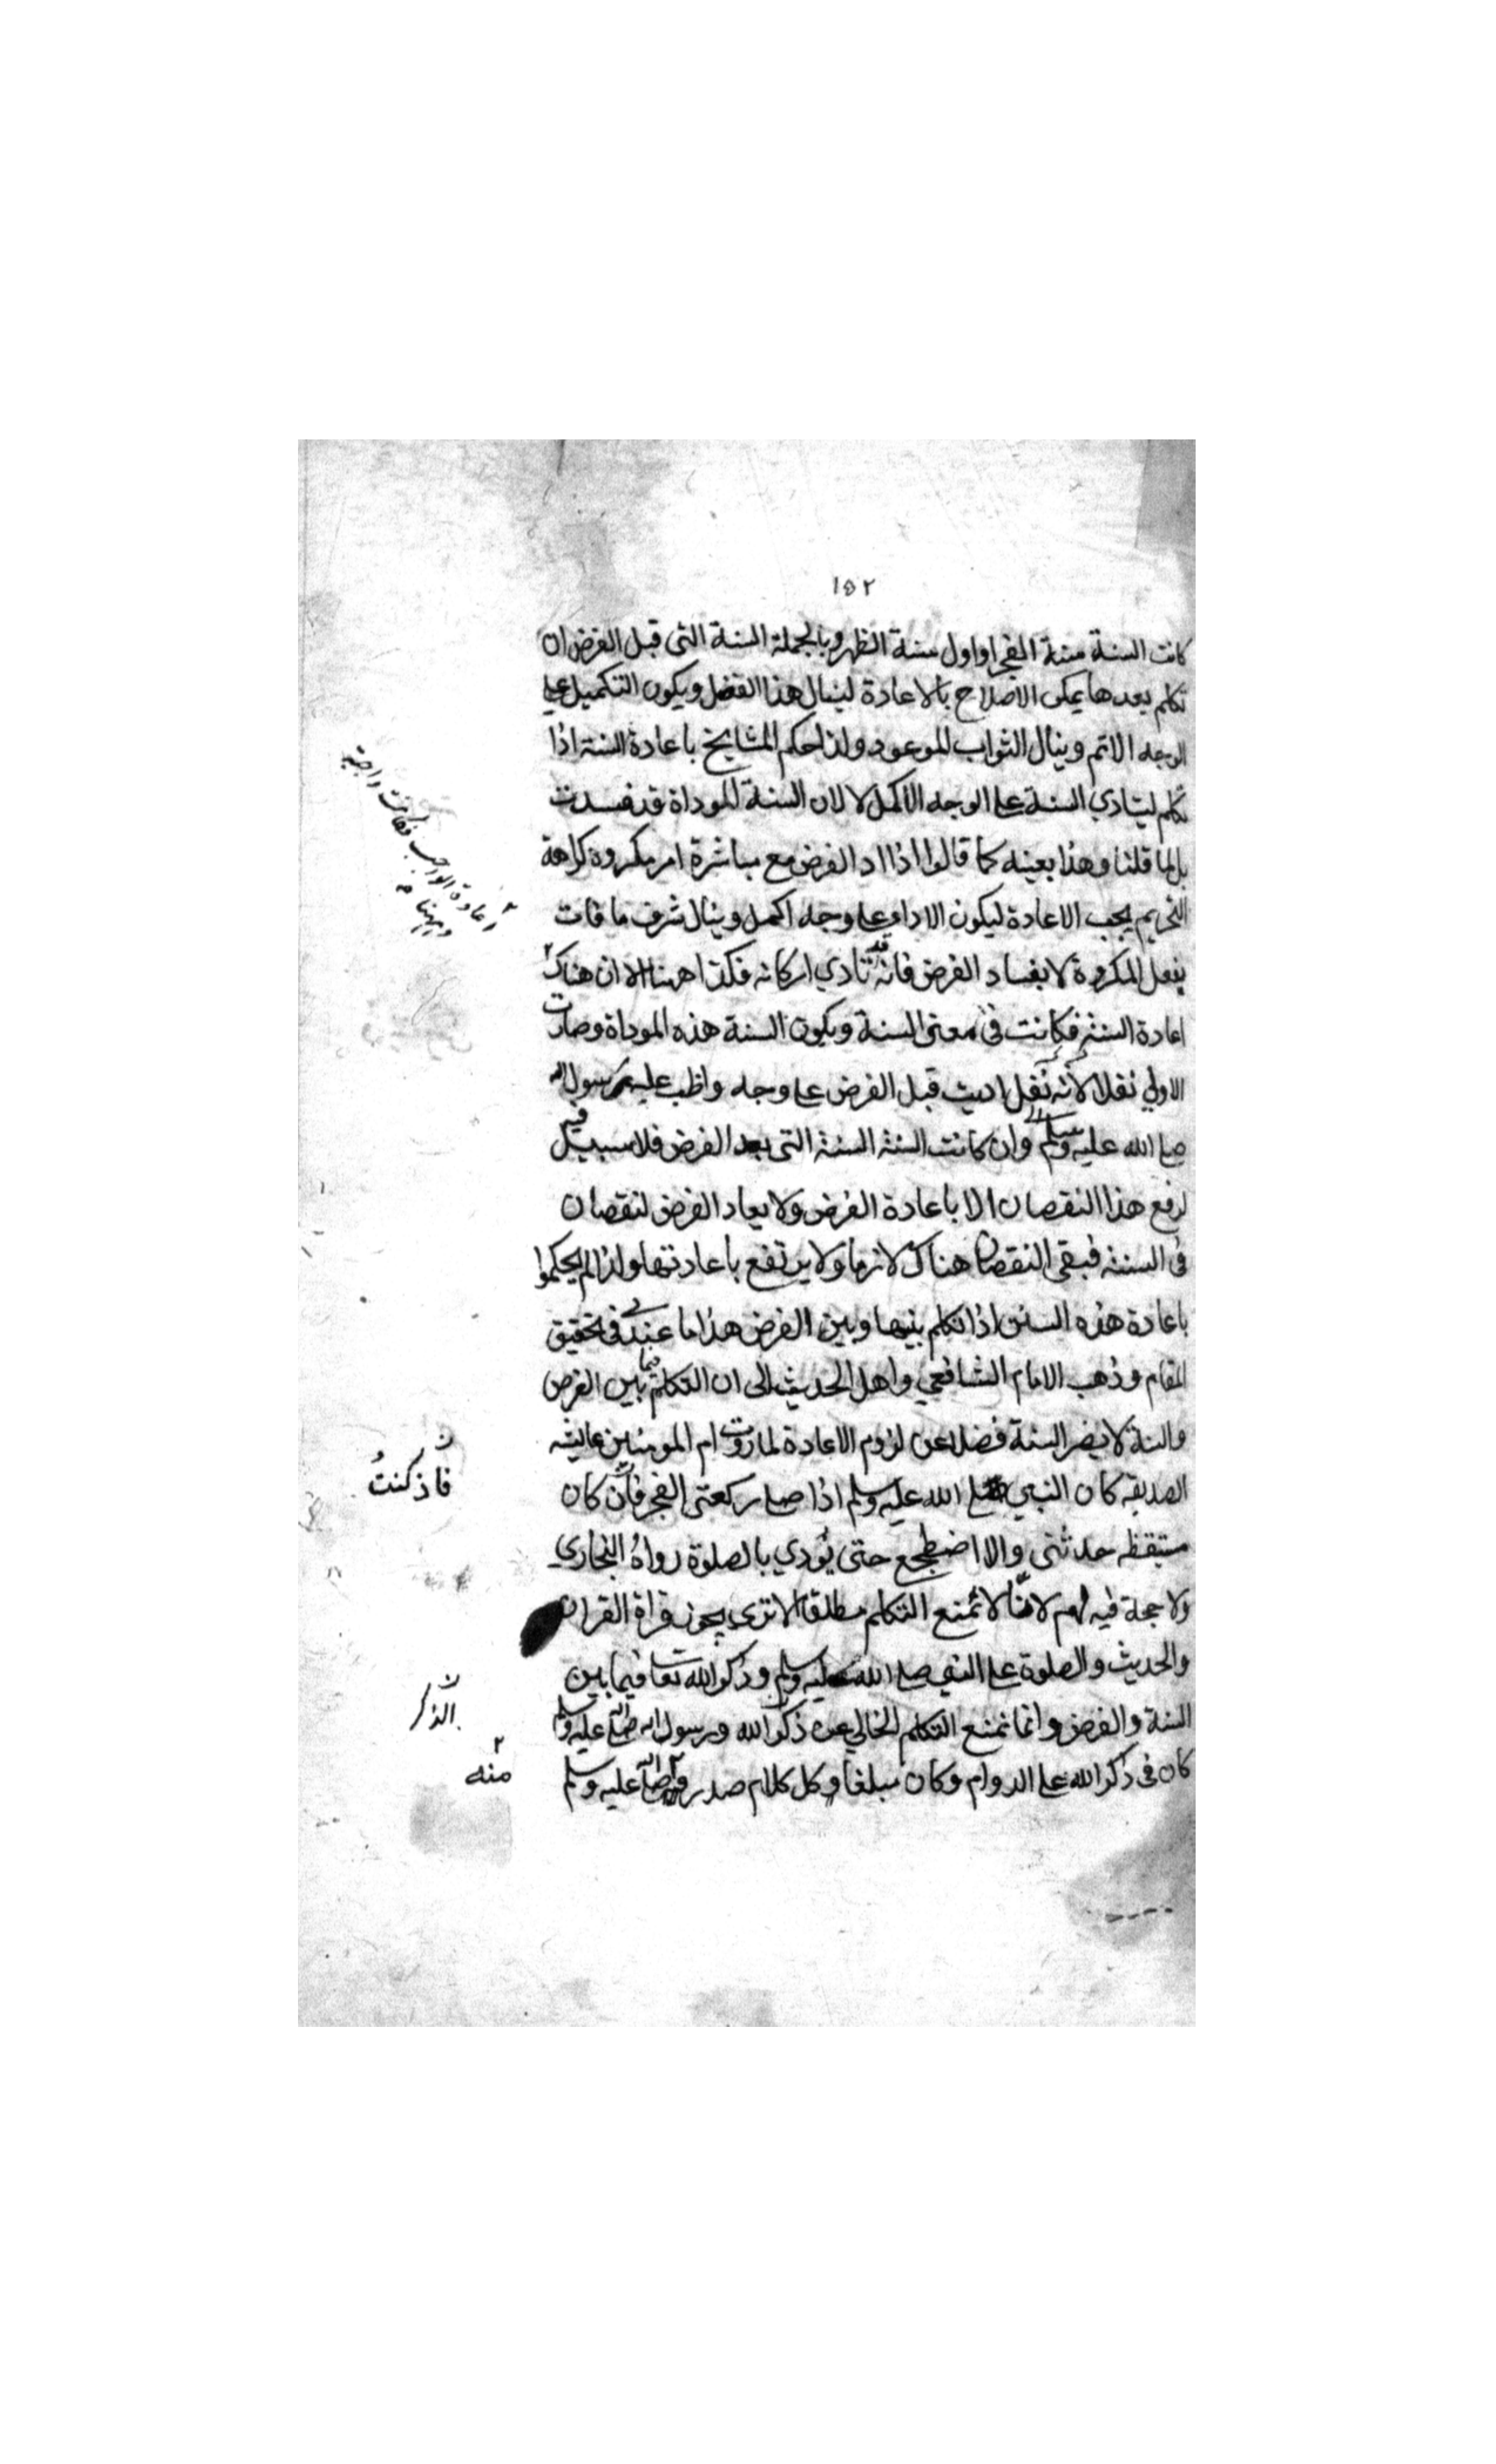 ١٥٢
كانت السنة سنة الفجر او اول سنة الظهر وبالجملة السنة التى قبل الفرض ان
تكلم بعدها يمكن الاصلاح بالاعادة لينال هذا الفضل ويكون التكميل على
الوجه الاتم وينال الثواب الموعود ولذا حكم المشايخ باعادة السنة اذا
تكلم ليتادي السنة على الوجه الاكمل لا لان السنة الموداة قد فسدت
بل لما قلنا وهذا بعينه كما قالوا اذا اد الفرض مع مباشرة امر مكروه كراهة
التحريم يجب الاعادة ليكون الاداء على وجه اكمل وينال شرف ما فات
بفعل المكروه لا بفساد الفرض فانه قد تادي اركانه فكذا ههنا الا ان هناك ٢
اعادة السنة فكانت فى معنى السنة ويكون السنة هذه الموداة وصارت
الاولى نفلا لانه نفل اديت قبل الفرض على وجه واظب عليه رسول الله
صلى الله عليه وسلم وان كانت السنة السنة التى بعد الفرض فلا سبيل فيه
لرفع هذا النقصان الا باعادة الفرض ولا يعاد الفرض لنقصان
فى السنة فبقى النقصان هناك لازما ولا يرتفع باعادتها ولذا لم يحكموا
باعادة هذه السنن اذا تكلم بينها وبين الفرض هذا ما عندى فى تحقيق
المقام وذهب الامام الشافعي واهل الحديث الى ان التكلم فيما بين الفرض
والسنة لا يضر السنة فضلا عن لزوم الاعادة لما روت ام المومنين عائشه
الصديقه كان النبي صلى الله عليه وسلم اذا صلى ركعتى الفجر فان كان
مستيقظه حدثنى والا اضطجع حتى يودي بالصلوة رواه البخاري
ولا حجة فيه لهم لاننا لا نمنع التكلم مطلقا الا ترى يجوز قراة القران
والحديث والصلوة على النبي صلى الله عليه وسلم وذكر الله تعا فيما بين
السنة والفرض وانما نمنع التكلم الخالي عن ذكر الله ورسول الله صلى الله عليه وسلم
كان فى ذكر الله على الدوام وكان مبلغا وكل كلام صدر ٢ صلى الله عليه وسلم
٢ اعادة الواجب فكانت واجبة
وههنا
ن
فاذ كنتُ
ن
الذكر
٢
منه